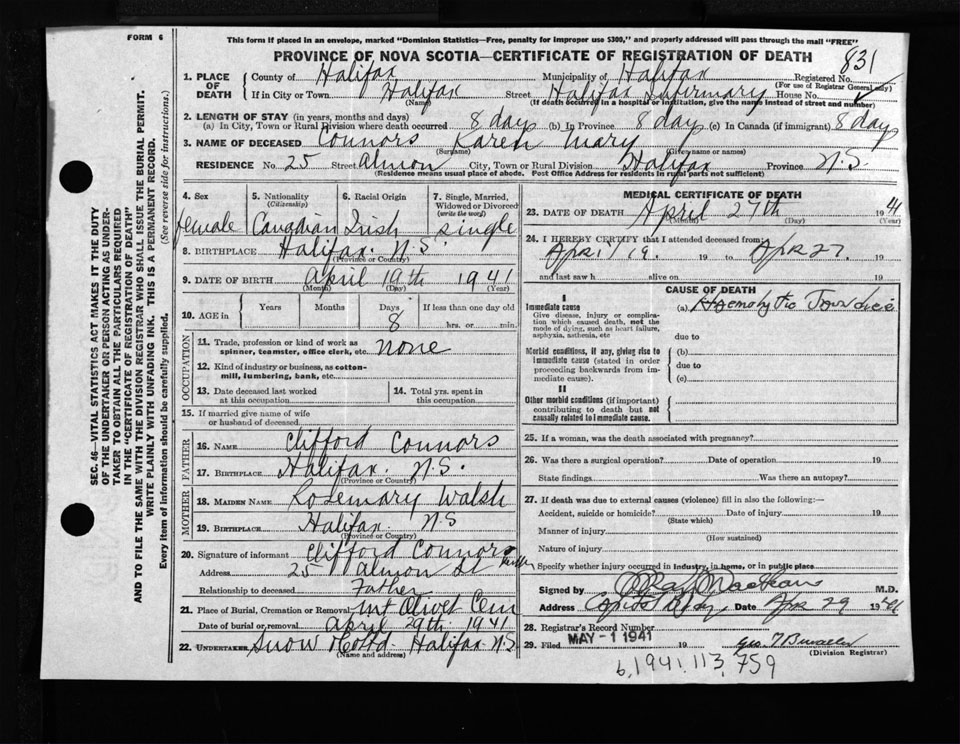 FORM 6
This form if placed in an envelope, marked "Dominion Statistics—Free, penalty for improper use $300," and properly addressed will pass through the mail "FREE"
PROVINCE OF NOVA SCOTIA—CERTIFICATE OF REGISTRATION OF DEATH
831
SEC. 46—VITAL STATISTICS ACT MAKES IT THE DUTY
OF THE UNDERTAKER OR PERSON ACTING AS UNDER-
TAKER TO OBTAIN ALL THE PARTICULARS REQUIRED
IN THE "CERTIFICATE OF REGISTRATION OF DEATH"
AND TO FILE THE SAME WITH THE DIVISION REGISTRAR WHO SHALL ISSUE THE BURIAL PERMIT.
WRITE PLAINLY WITH UNFADING INK. THIS IS A PERMANENT RECORD.
Every item of information should be carefully supplied. (See reverse side for instructions.)
1. PLACE OF DEATH County of Halifax Municipality of Halifax Registered No.
(For use of Registrar General only)
If in City or Town Halifax Street Halifax Infirmary House No.
(Name) (If death occurred in a hospital or institution, give the name instead of street and number)
2. LENGTH OF STAY (in years, months and days)
(a) In City, Town or Rural Division where death occurred 8 day (b) In Province 8 day (c) In Canada (if immigrant) 8 day
3. NAME OF DECEASED Connors Karen Mary
(Surname) (Given name or names)
RESIDENCE No. 25 Street Almon City, Town or Rural Division Halifax Province N.S.
(Residence means usual place of abode. Post Office Address for residents in rural parts not sufficient)
4. Sex 5. Nationality 6. Racial Origin 7. Single, Married,
(Citizenship) Widowed or Divorced
(write the word)
female Canadian Irish single
8. BIRTHPLACE Halifax N.S.
(Province or Country)
9. DATE OF BIRTH April 19th 1941
(Month) (Day) (Year)
10. AGE in Years Months Days If less than one day old
8 hrs. or min.
OCCUPATION
11. Trade, profession or kind of work as
spinner, teamster, office clerk, etc. none
12. Kind of industry or business, as cotton-
mill, lumbering, bank, etc.
13. Date deceased last worked
at this occupation
14. Total yrs. spent in
this occupation
15. If married give name of wife
or husband of deceased
FATHER
16. NAME Clifford Connors
17. BIRTHPLACE Halifax. N.S.
(Province or Country)
MOTHER
18. MAIDEN NAME Rosemary Walsh
19. BIRTHPLACE Halifax. N.S
(Province or Country)
20. Signature of informant Clifford Connors
Address 25 Almon St
Relationship to deceased Father
21. Place of Burial, Cremation or Removal Mt Olivet Cem
Date of burial or removal April 29th 1941
22. UNDERTAKER Snow & Co Ltd. Halifax N.S
(Name and address)
MEDICAL CERTIFICATE OF DEATH
23. DATE OF DEATH April 27th 1941
(Month) (Day) (Year)
24. I HEREBY CERTIFY that I attended deceased from
April 19. 19 to Apr 27. 19
and last saw h alive on 19
CAUSE OF DEATH
I
Immediate cause
Give disease, injury or complica-
tion which caused death, not the
mode of dying, such as heart failure,
asphyxia, asthenia, etc
(a) Haemolytic Jaundice
due to
Morbid conditions, if any, giving rise to
immediate cause (stated in order
proceeding backwards from im-
mediate cause).
(b)
due to
(c)
II
Other morbid conditions (if important)
contributing to death but not
causally related to immediate cause.
25. If a woman, was the death associated with pregnancy?
26. Was there a surgical operation? Date of operation 19
State findings Was there an autopsy?
27. If death was due to external causes (violence) fill in also the following:—
Accident, suicide or homicide? Date of injury 19
(State which)
Manner of injury
(How sustained)
Nature of injury
Specify whether injury occurred in industry, in home, or in public place
Signed by M.D.
Address Date Apr 29 1941
28. Registrar's Record Number
29. Filed MAY - 1 1941 19
(Division Registrar)
6,1941.113,759